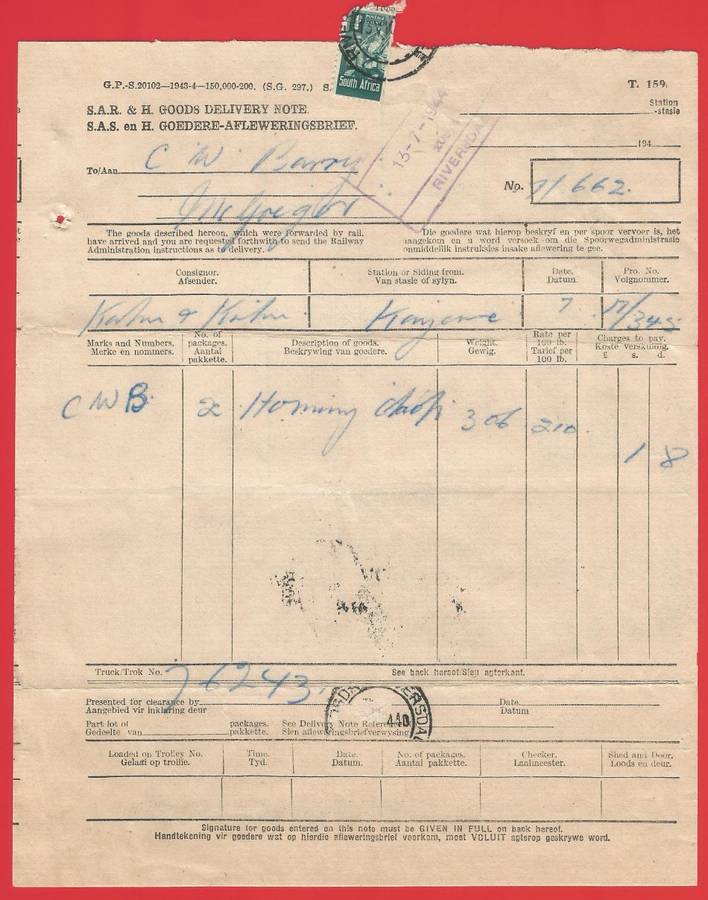 South Africa
G.P.-S.20102—1943-4—150,000-200. (S.G. 297.) S.
T. 159.
S.A.R. & H. GOODS DELIVERY NOTE.
S.A.S. en H. GOEDERE-AFLEWERINGSBRIEF.
Station
-stasie
13-7-1944
RIVERSDA
194
To/Aan C W Barry
McGregor
No. 71/662.
The goods described hereon, which were forwarded by rail, have arrived and you are requested forthwith to send the Railway Administration instructions as to delivery.
Die goedere wat hierop beskryf en per spoor vervoer is, het aangekom en u word versoek om die Spoorwegadministrasie onmiddellik instruksies insake aflewering te gee.
Consignor. Station or Siding from. Date. Pro. No.
Afsender. Van stasie of sylyn. Datum Volgnommer.
7 17/345
Marks and Numbers. No. of packages. Description of goods. Weight. Rate per 100 lb. Charges to pay.
Merke en nommers. Aantal pakkette. Beskrywing van goedere. Gewig. Tarief per 100 lb. Koste verskuldig.
£ s. d.
CWB 2 Hominy chop 306 210
1 8
Truck/Trok No. 76243. See back hereof/Sien agterkant.
Presented for clearance by Date
Aangebied vir inklaring deur Datum
Part lot of packages. See Delivery Note Reference
Gedeelte van pakkette. Sien afleweringsbriefverwysing
RSDA ERSDA
440
Loaded on Trolley No. Time. Date. No. of packages. Checker. Shed and Door.
Gelaai op trollie. Tyd. Datum. Aantal pakkette. Laaimeester. Loods en deur.
Signature for goods entered on this note must be GIVEN IN FULL on back hereof.
Handtekening vir goedere wat op hierdie afleweringsbrief voorkom, moet VOLUIT agterop geskrywe word.